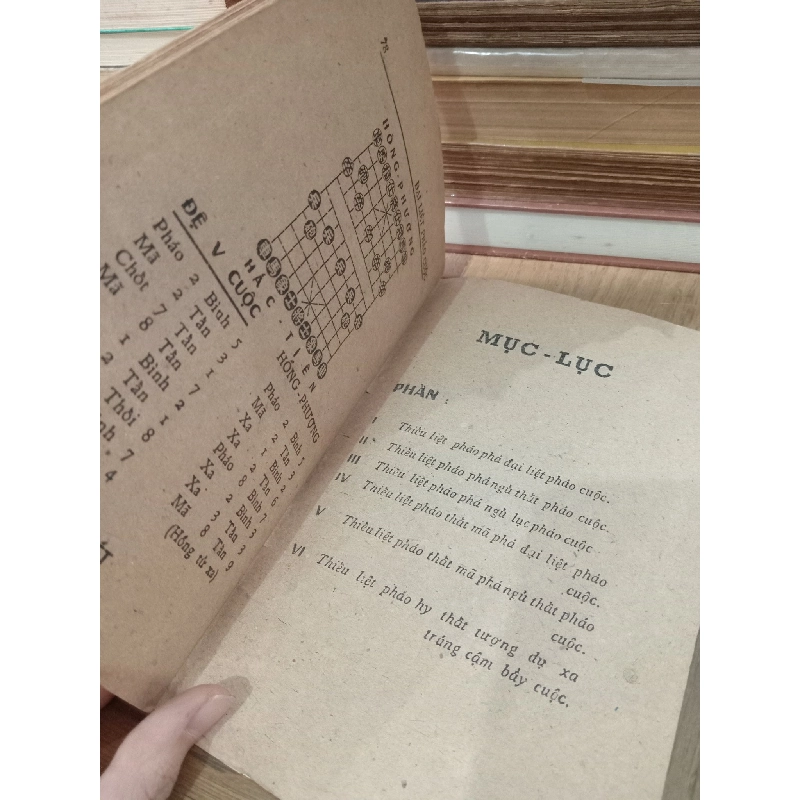 78
ĐẠI LIỆT PHÁO CUỘC
HỒNG-PHƯỢNG
HẮC-TIÊN
ĐỆ V CUỘC
HỒNG-PHƯỢNG
Pháo 2 Bình 5
Mã 2 Tấn 3
Chốt 7 Tấn 1
Mã 8 Tấn 7
1 Bình 2
2 Tấn 1
Thối 8
7
4
Pháo 2 Bình 5
Mã 2 Tấn 3
Xa 1 Bình 2
Xa 2 Tấn 6
Pháo 8 Bình 7
Xa 2 Bình 3
Xa 3 Tấn 3
Mã 8 Tấn 9
(Hồng từ xa)
MỤC-LỤC
PHẦN :
I Thiều liệt pháo phá đại liệt pháo cuộc.
II Thiều liệt pháo phá ngũ thất pháo cuộc.
III Thiều liệt pháo phá ngũ lục pháo cuộc
IV Thiều liệt pháo thất mã phá đại liệt pháo
cuộc.
V Thiều liệt pháo thất mã phá ngũ thất pháo
cuộc.
VI Thiều liệt pháo hy thất tượng dụ xa
trúng cậm bẩy cuộc.